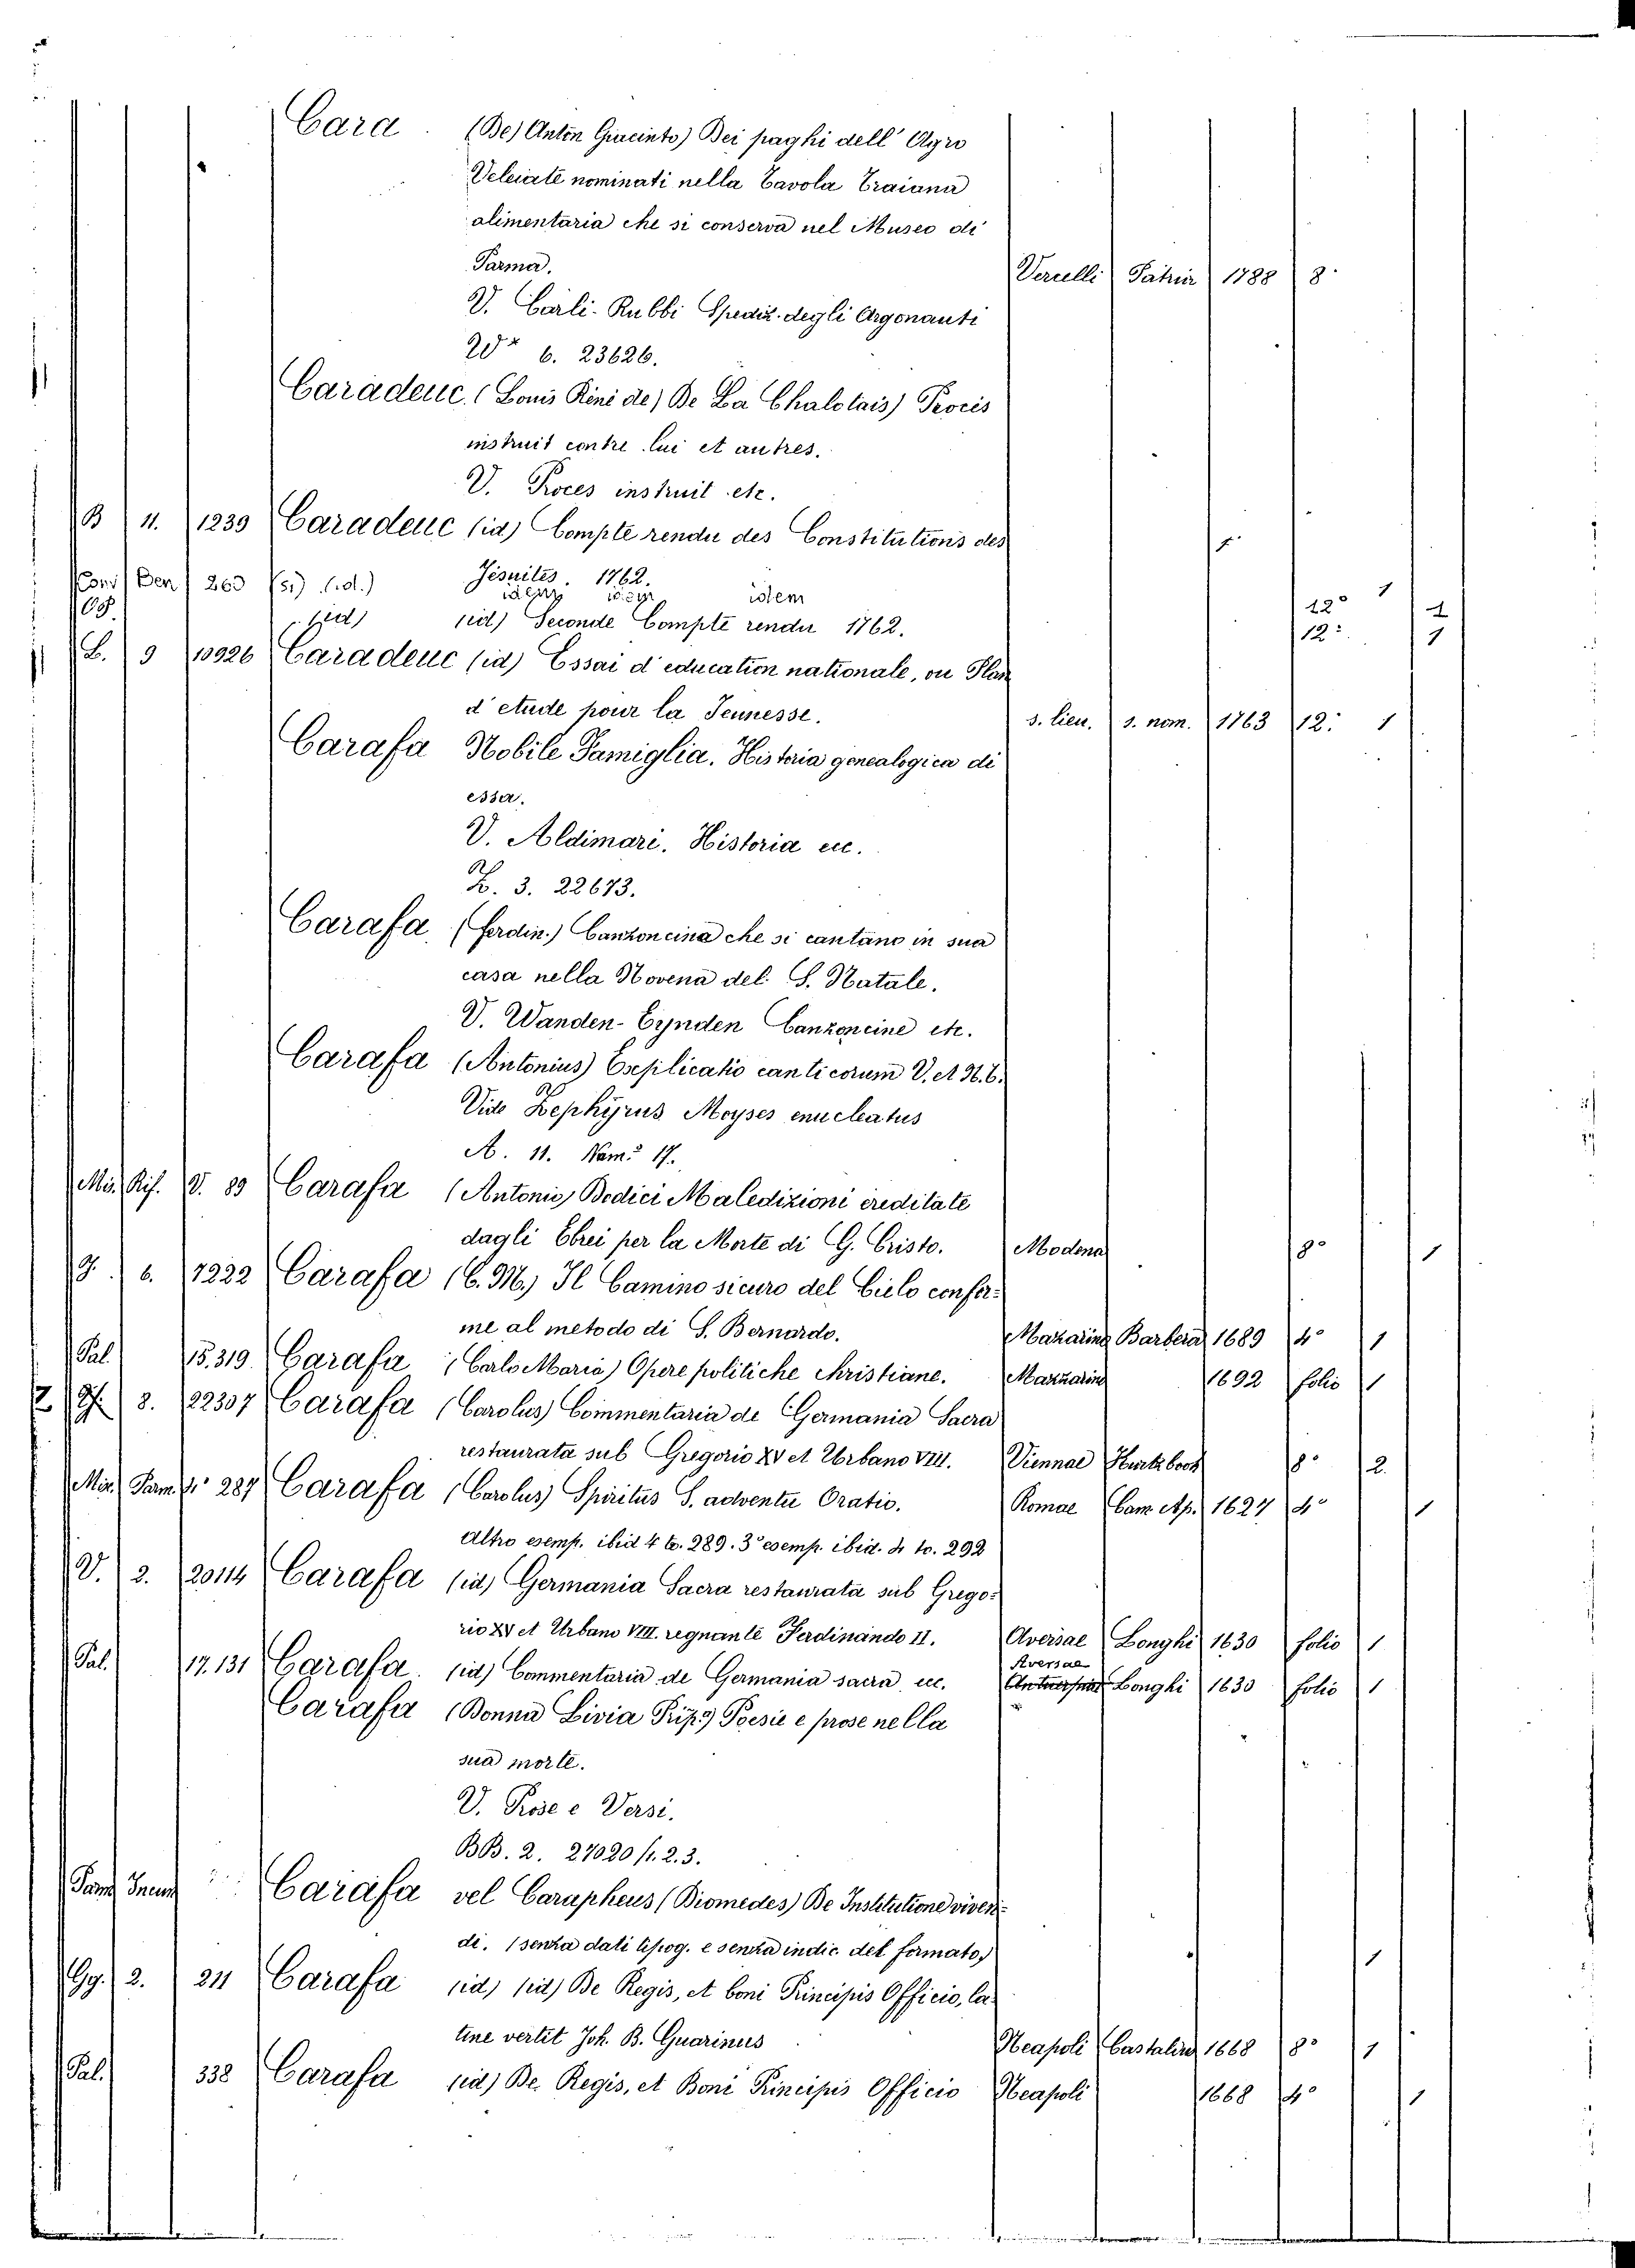 Cara (De) Anton Giacinto) Dei paghi dell' Agro
Veleiate nominati nella Tavola Traiana
alimentaria che si conserva nel Museo di
Parma. Vercelli Patria 1788 8.
V. Carli-Rubbi Spediz. degli Argonauti
6. 23626.
Caradeuc (Louis Réné de) De La Chalotais) Procés
instruit contre lui et autres.
V. Proces instruit etc.
B 11. 1239 Caradeuc (id) Compte rendu des Constitutions des
Jésuites. 1762.
Ben 260 (id.) idem idem 12° 1
(id) (id) Seconde Compte rendu 1762. 12: 1
L. 9 10926 Caradeuc (id) Essai d'education nationale, ou Plan
d'etude pour la Jeunesse. s. lieu. s. nom. 1763 12: 1
Carafa Nobile Famiglia. Historia genealogica di
essa.
V. Aldimari. Historia ecc.
Z. 3. 22673.
Carafa (Ferdin.) Canzoncina che si cantano in sua
casa nella Novena del S. Natale.
V. Wanden-Eynden Canzoncine etc.
Carafa (Antonius) Explicatio canticorum V. et N. T.
Vide Zephyrus Moyses enucleatus
A. 11. Num. 17.
Mis. Rif. V. 89 Carafa (Antonio) Dodici Maledizioni ereditate
dagli Ebrei per la Morte di G. Cristo. Modena 8° 1
J. 6. 7222 Carafa (C. M.) Il Camino sicuro del Cielo confor-
me al metodo di S. Bernardo. Mazarino Barbera 1689 4° 1
Pal. 15.319. Carafa (Carlo Maria) Opere politiche Christiane. Mazzarino 1692 folio 1
8. 22307 Carafa (Carolus) Commentaria de Germania Sacra
restaurata sub Gregorio XV et Urbano VIII. Viennae 8° 2.
Mis. Parm. 4° 287 Carafa (Carolus) Spiritus S. adventu Oratio. Romae Cam. Ap. 1627 4° 1
Altro esemp. ibid 4 to. 289. 3° esemp. ibid. 4 to. 292
V. 2. 20114 Carafa (id) Germania Sacra restaurata sub Grego-
rio XV et Urbano VIII. regnante Ferdinando II. Aversae Longhi 1630 folio 1
Aversae
Pal. 17.131 Carafa (id) Commentaria de Germania sacra ecc. Longhi 1630 folio 1
Carafa (Donna Livia Prip.) Poesie e prose nella
sua morte.
V. Prose e Versi.
BB. 2. 27020/1. 2. 3.
Parm Incun Carafa vel Carapheus (Diomedes) De Institutione viven-
di. (senza dati tipog. e senza indic. del formato) 1
Gg. 2. 211 Carafa (id) (id) De Regis, et boni Principis Officio, la-
tine vertit Joh. B. Guarinus Neapoli Castaldo 1668 8° 1
Pal. 338 Carafa (id) De Regis, et Boni Principis Officio Neapoli 1668 4° 1